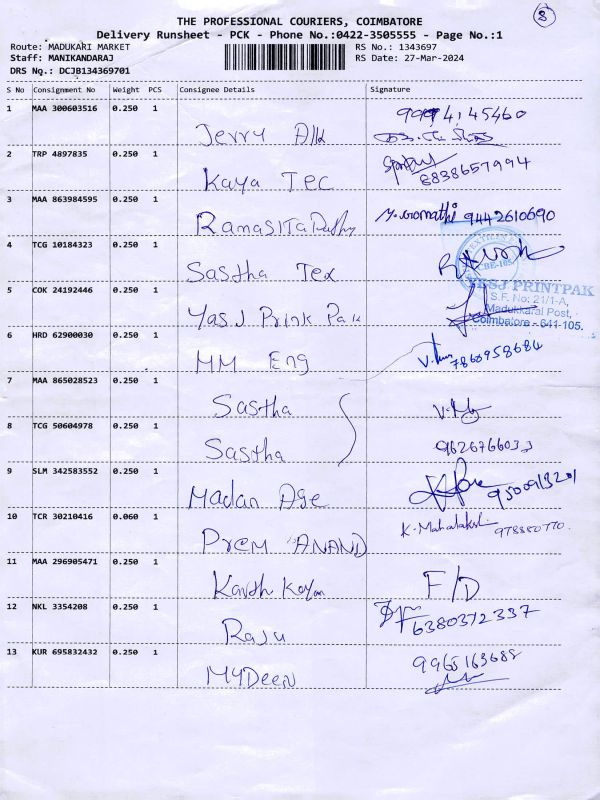 8
THE PROFESSIONAL COURIERS, COIMBATORE
Delivery Runsheet - PCK - Phone No.:0422-3505555 - Page No.:1
Route: MADUKARI MARKET RS No.: 1343697
Staff: MANIKANDARAJ RS Date: 27-Mar-2024
DRS No.: DCJB134369701
S No Consignment No Weight PCS Consignee Details Signature
1 MAA 300603516 0.250 1
Jerry
2 TRP 4897835 0.250 1
Kaya Tec 8838657994
3 MAA 863984595 0.250 1
Ramasita M. Gomathi 9442610690
4 TCG 10184323 0.250 1
Sastha Tex
5 COK 24192446 0.250 1
Yas.J Print Pak
YESJ PRINTPAK
S.F. No: 21/1-A,
Madukkarai Post,
Coimbatore - 641-105.
6 HRD 62900030 0.250 1
MM Eng 7868958684
7 MAA 865028523 0.250 1
Sastha
8 TCG 50604978 0.250 1
Sastha 9626766033
9 SLM 342583552 0.250 1
Madan Age 9500913201
10 TCR 30210416 0.060 1
Prem ANAND K. Mahalakshmi
11 MAA 296905471 0.250 1
F/D
12 NKL 3354208 0.250 1
Raju 6380372337
13 KUR 695832432 0.250 1
MYDeeN 9965163688